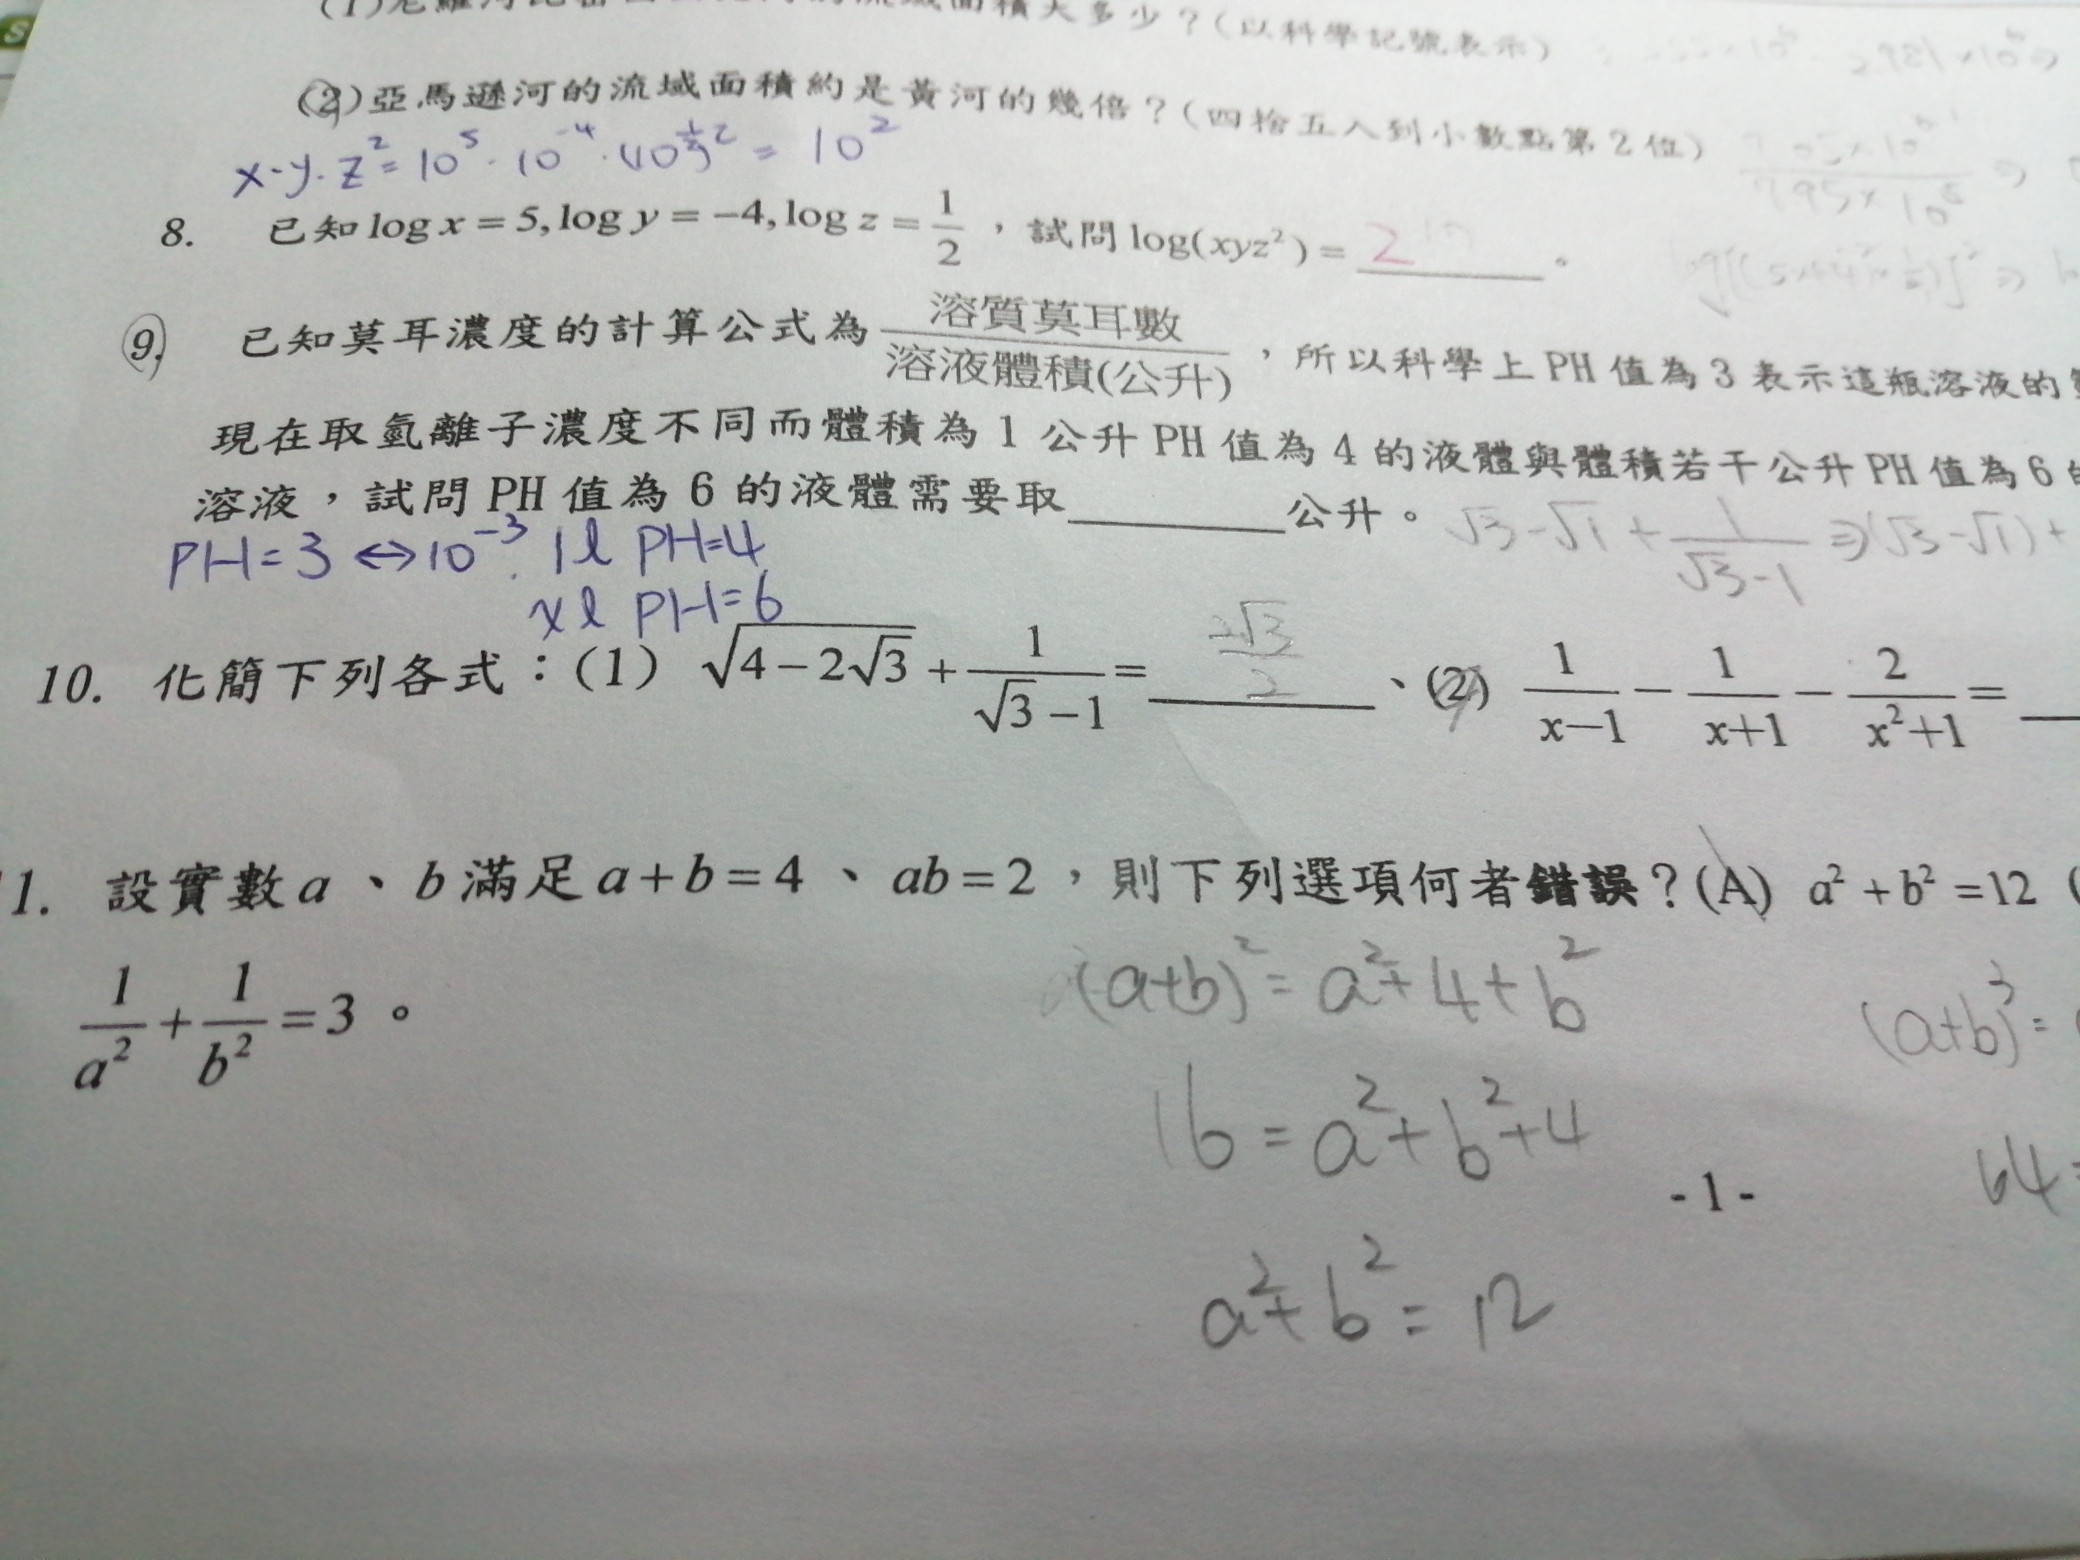 流域面積大多少？(以科學記號表示)
(2)亞馬遜河的流域面積約是黃河的幾倍？(四捨五入到小數點第2位)
x·y·z²=10⁵·10⁻⁴·(10^½)²=10²
8. 已知 log x = 5, log y = −4, log z = 1/2 ，試問 log(xyz²) = 2 。
9. 已知莫耳濃度的計算公式為 溶質莫耳數/溶液體積(公升) ，所以科學上 PH 值為 3 表示這瓶溶液的
現在取氫離子濃度不同而體積為 1 公升 PH 值為 4 的液體與體積若干公升 PH 值為 6
溶液，試問 PH 值為 6 的液體需要取______公升。 √3−√1+1/(√3−1) ⇒(√3−√1)+
PH=3 ↔10⁻³. 1l PH=4
xl PH=6
10. 化簡下列各式：(1) √(4−2√3) + 1/(√3−1) = ______、(2) 1/(x−1) − 1/(x+1) − 2/(x²+1) =
1. 設實數 a 、 b 滿足 a+b=4 、 ab=2 ，則下列選項何者錯誤？(A) a² + b² =12 (
(a+b)²=a²+4+b²
1/a² + 1/b² = 3 。
(a+b)³=
16=a²+b²+4
64=
-1-
a²+b²=12